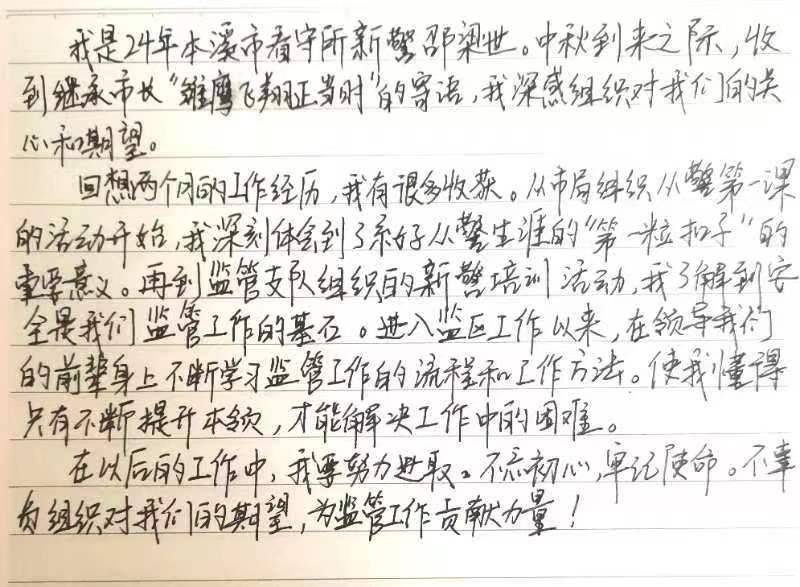 我是24年本溪市看守所新警邵梁世。中秋到来之际，收
到继承市长“雏鹰飞翔正当时”的寄语，我深感组织对我们的关
心和期望。
回想两个月的工作经历，我有很多收获。从市局组织从警第一课
的活动开始，我深刻体会到了系好从警生涯的“第一粒扣子”的
重要意义。再到监管支队组织的新警培训活动，我了解到安
全是我们监管工作的基石。进入监区工作以来，在领导我们
的前辈身上不断学习监管工作的流程和工作方法。使我懂得
只有不断提升本领，才能解决工作中的困难。
在以后的工作中，我要努力进取。不忘初心，牢记使命。不辜
负组织对我们的期望，为监管工作贡献力量！